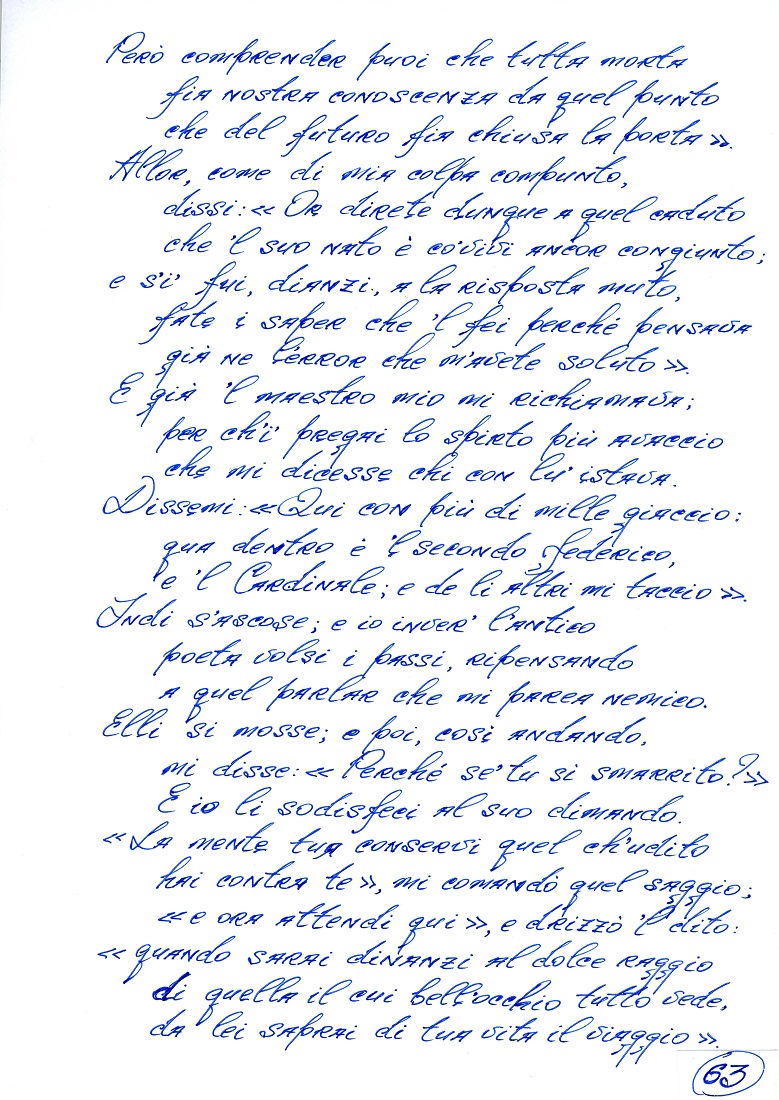 Però comprender puoi che tutta morta
fia nostra conoscenza da quel punto
che del futuro fia chiusa la porta».
Allor, come di mia colpa compunto,
dissi: «Or direte dunque a quel caduto
che 'l suo nato è co' vivi ancor congiunto;
e s'i' fui, dianzi, a la risposta muto,
fate i saper che 'l fei perché pensava
già ne l'error che m'avete soluto».
E già 'l maestro mio mi richiamava;
per ch'i' pregai lo spirto più avaccio
che mi dicesse chi con lu' istava.
Dissemi: «Qui con più di mille giaccio:
qua dentro è 'l secondo Federico,
e 'l Cardinale; e de li altri mi taccio».
Indi s'ascose; e io inver' l'antico
poeta volsi i passi, ripensando
a quel parlar che mi parea nemico.
Elli si mosse; e poi, così andando,
mi disse: «Perché se' tu si smarrito?»
E io li sodisfeci al suo dimando.
«La mente tua conservi quel ch'udito
hai contra te», mi comandò quel saggio;
«e ora attendi qui», e drizzò 'l dito:
«quando sarai dinanzi al dolce raggio
di quella il cui bell'occhio tutto vede,
da lei saprai di tua vita il viaggio».
63